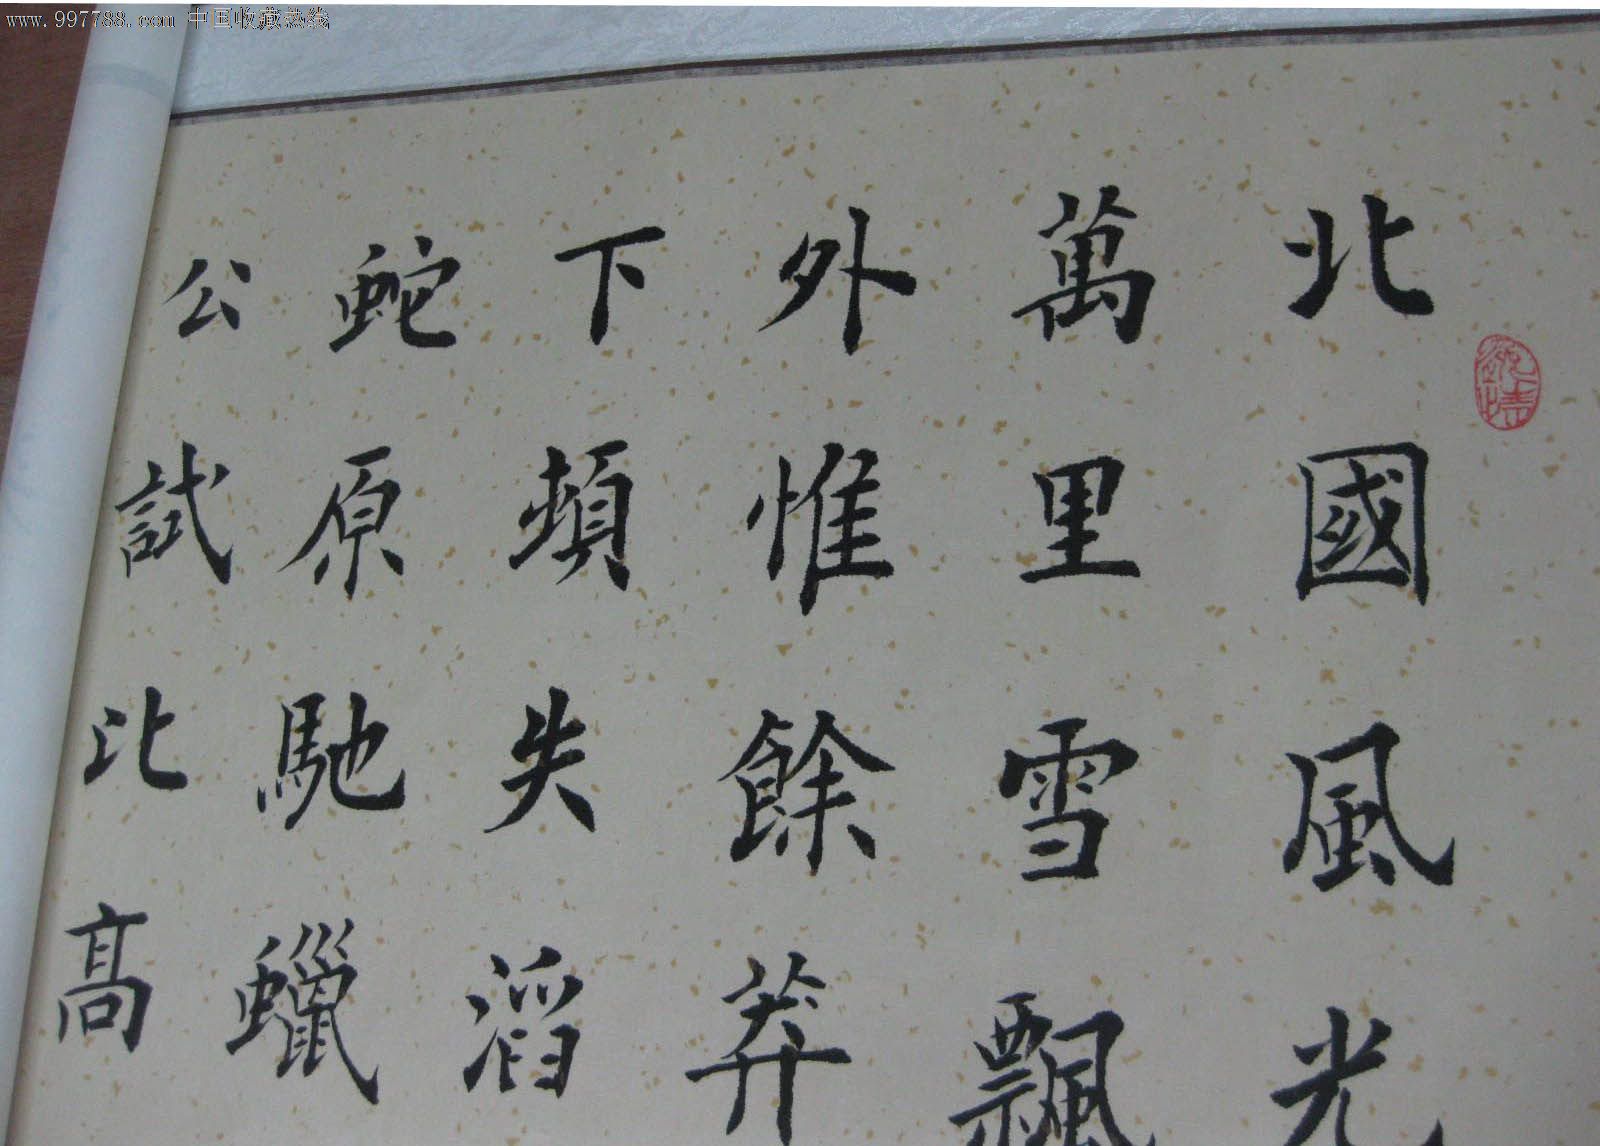 www.997788.com 中国收藏热线
北國風光
萬里雪飄
外惟餘莽
下頓失滔
蛇原馳蠟
公試比高